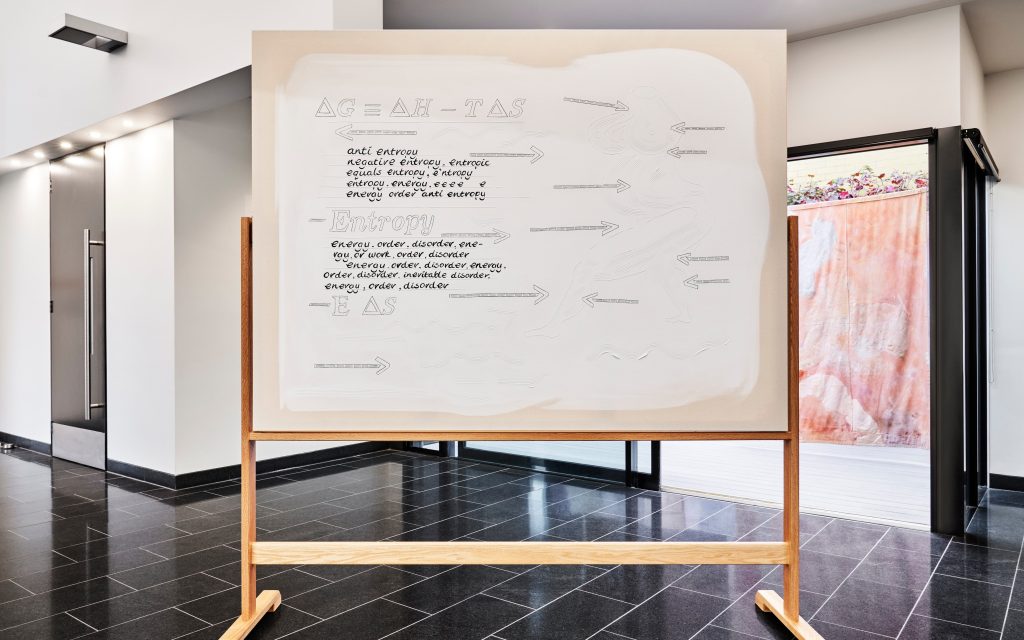 ΔG = ΔH - TΔS
anti entropy
negative entropy. entropic
equals entropy, e'ntropy
entropy. energy. e e e e e
energy order anti entropy
Entropy
energy. order. disorder, ene-
rgy, or work, order, disorder
energy. order. disorder, energy.
order, disorder. ineritable disorder.
energy, order, disorder
E ΔS